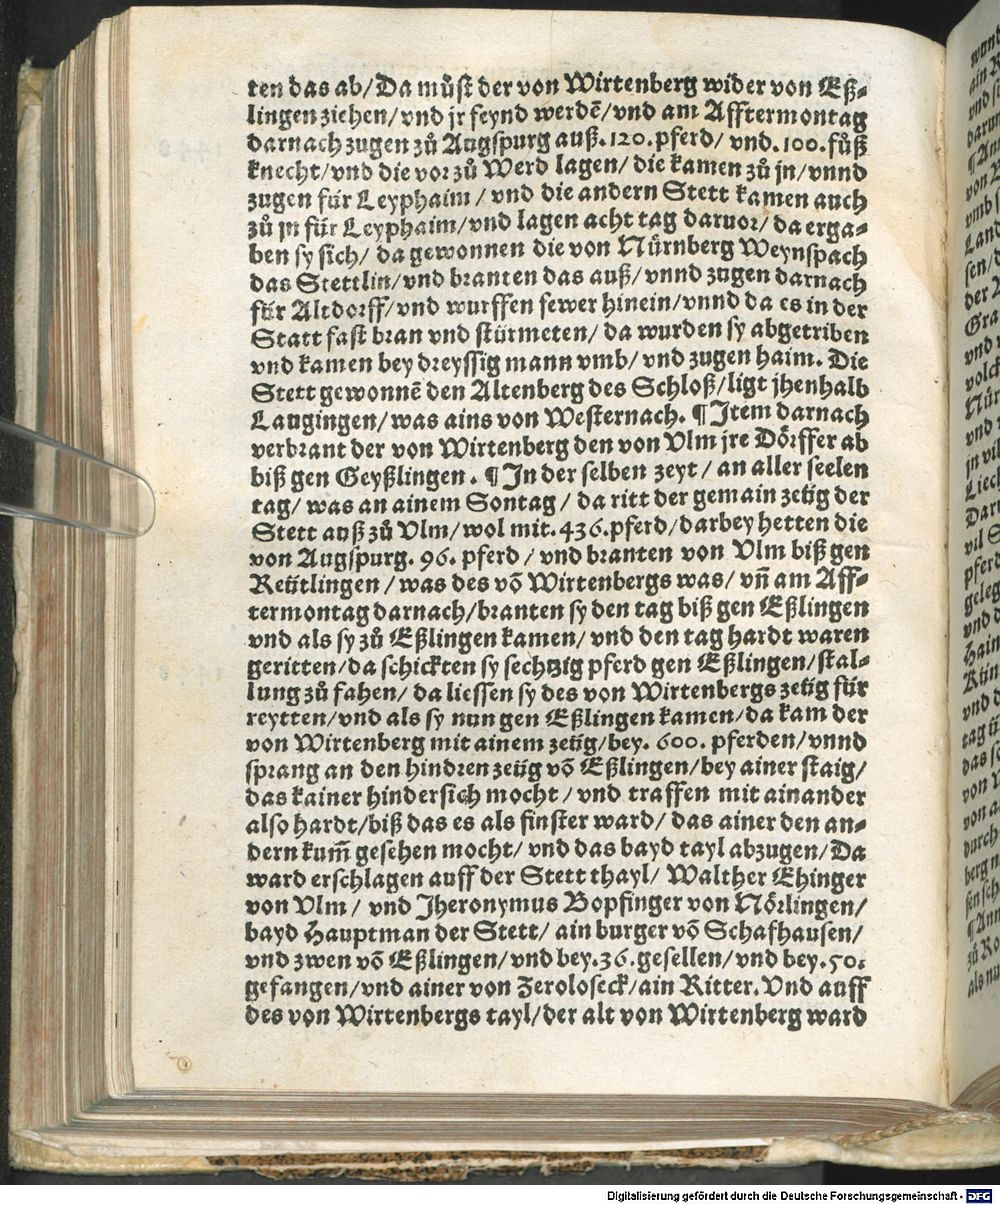 ten das ab/Da můſt der von Wirtenberg wider von Eß⸗
lingen ziehen/vnd jr feynd werdē/vnd am Afftermontag
darnach zugen zů Augſpurg auß.120.pferd/ vnd.100.fůß
knecht/vnd die vor zů Werd lagen/ die kamen zů jn/vnnd
zugen für Leyphaim/ vnd die andern Stett kamen auch
zů jn für Leyphaim/vnd lagen acht tag daruor/ da erga⸗
ben ſy ſich/ da gewonnen die von Nürnberg Weynſpach
das Stettlin/vnd branten das auß/vnnd zugen darnach
für Altdorff/vnd wurffen fewer hinein/vnnd da es in der
Statt faſt bran vnd ſtürmeten/ da wurden ſy abgetriben
vnd kamen bey dreyſſig mann vmb/ vnd zugen haim. Die
Stett gewonnē den Altenberg des Schloß/ligt jhenhalb
Laugingen/was ains von Weſternach. ¶ Item darnach
verbrant der von Wirtenberg den von Vlm jre Dörffer ab
biß gen Geyßlingen. ¶ In der ſelben zeyt/ an aller ſeelen
tag/ was an ainem Sontag/ da ritt der gemain zeüg der
Stett auß zů Vlm/wol mit.436.pferd/darbey hetten die
von Augſpurg.96. pferd/ vnd branten von Vlm biß gen
Reütlingen/was des vō Wirtenbergs was/ vñ am Aff⸗
termontag darnach/branten ſy den tag biß gen Eßlingen
vnd als ſy zů Eßlingen kamen/ vnd den tag hardt waren
geritten/da ſchickten ſy ſechtzig pferd gen Eßlingen/ſtal⸗
lung zů fahen/ da lieſſen ſy des von Wirtenbergs zeüg für
reytten/vnd als ſy nun gen Eßlingen kamen/da kam der
von Wirtenberg mit ainem zeüg/bey. 600. pferden/vnnd
ſprang an den hindren zeüg vō Eßlingen/bey ainer ſtaig/
das kainer hinderſich mocht/ vnd traffen mit ainander
alſo hardt/biß das es als finſter ward/ das ainer den an⸗
dern kum̃ geſehen mocht/ vnd das bayd tayl abzugen/Da
ward erſchlagen auff der Stett thayl/ Walther Ehinger
von Vlm/ vnd Jheronymus Bopfinger von Nörlingen/
bayd Hauptman der Stett/ ain burger vō Schafhauſen/
vnd zwen vō Eßlingen/vnd bey.36.geſellen/vnd bey.50.
gefangen/vnd ainer von Zeroloſeck/ain Ritter. Vnd auff
des von Wirtenbergs tayl/der alt von Wirtenberg ward
Digitalisierung gefördert durch die Deutsche Forschungsgemeinschaft - DFG